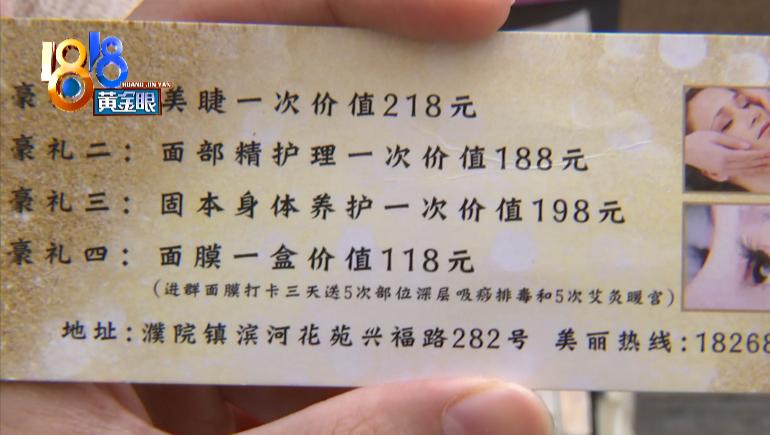 1818
HUANG JIN YAN
黄金眼
豪
美睫一次价值218元
豪礼二：面部精护理一次价值188元
豪礼三：固本身体养护一次价值198元
豪礼四：面膜一盒价值118元
（进群面膜打卡三天送5次部位深层吸痧排毒和5次艾灸暖宫）
地址:濮院镇滨河花苑兴福路282号 美丽热线:18268